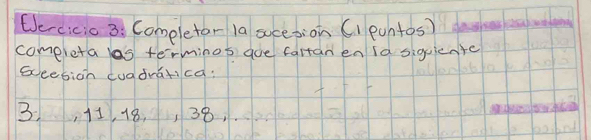 Ejercicio 3: Completar la sucesión (1 puntos)
completa los términos que faltan en la siguiente
sucesión cuadrática:
3, , 11, 18, , 38, ...